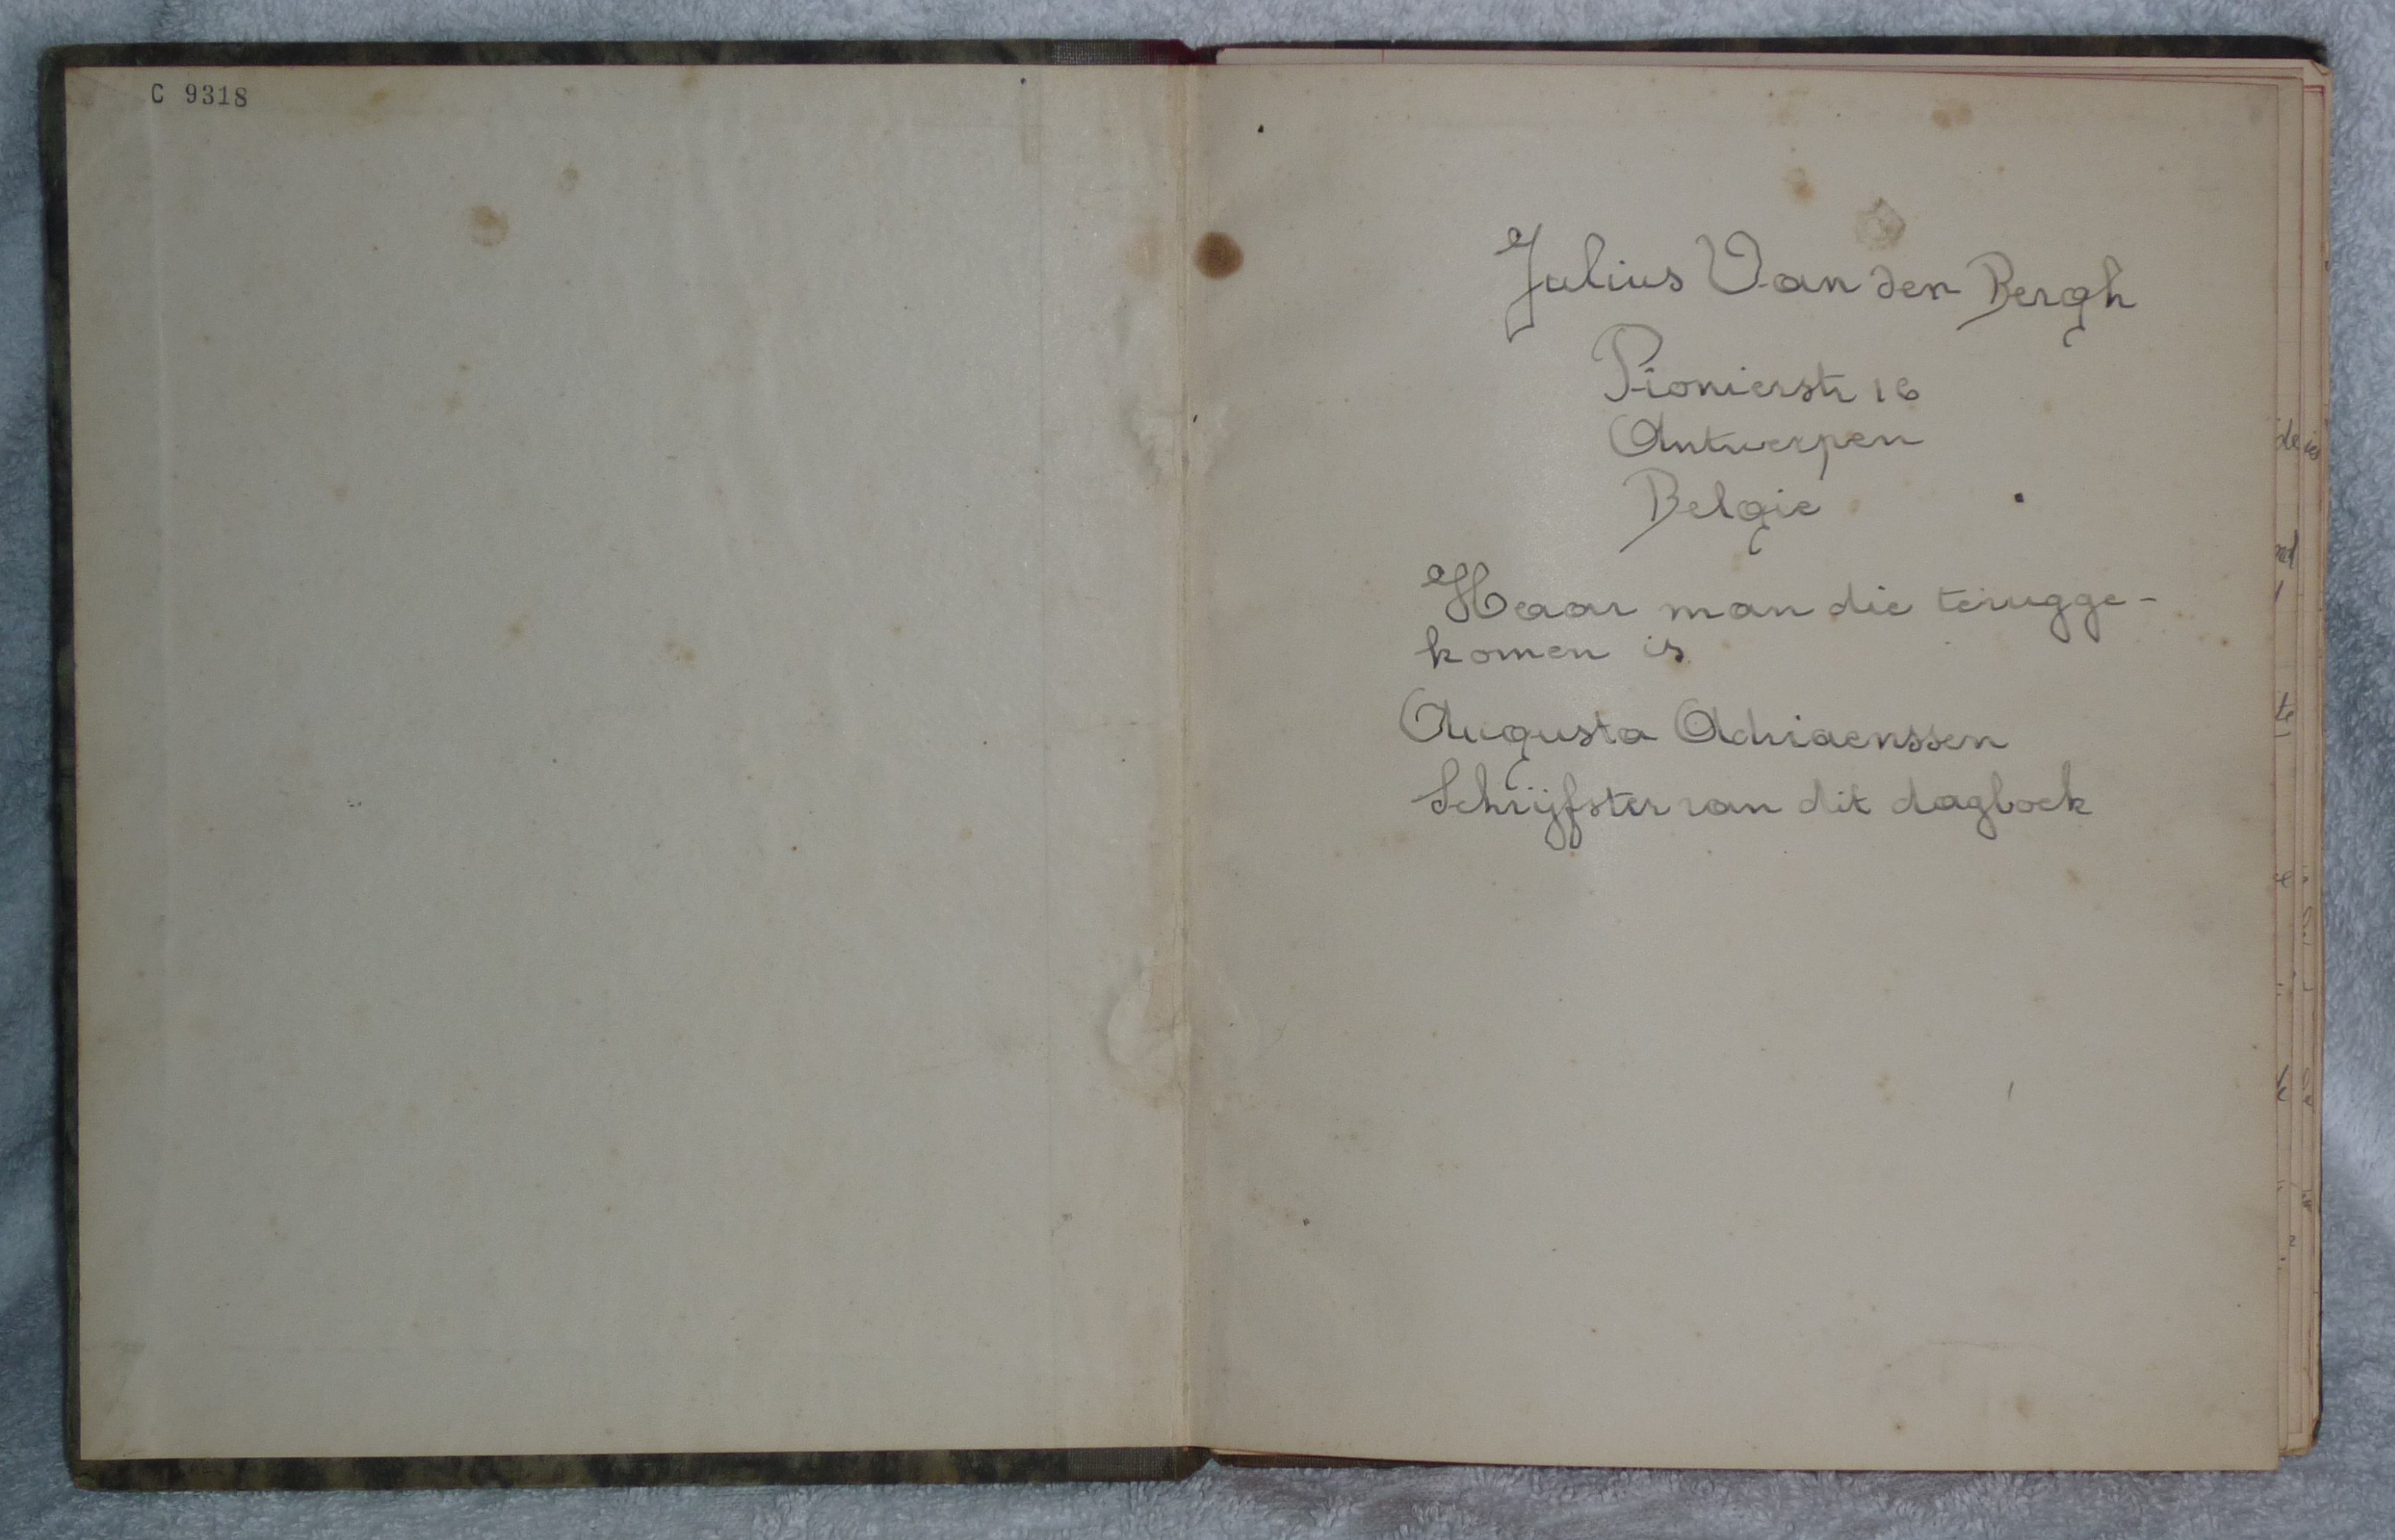 C 9318
Julius Van den Bergh
Pionierstr 16
Antwerpen
Belgie
Haar man die terugge-
komen is
Augusta Adriaenssen
Schrijfster van dit dagboek